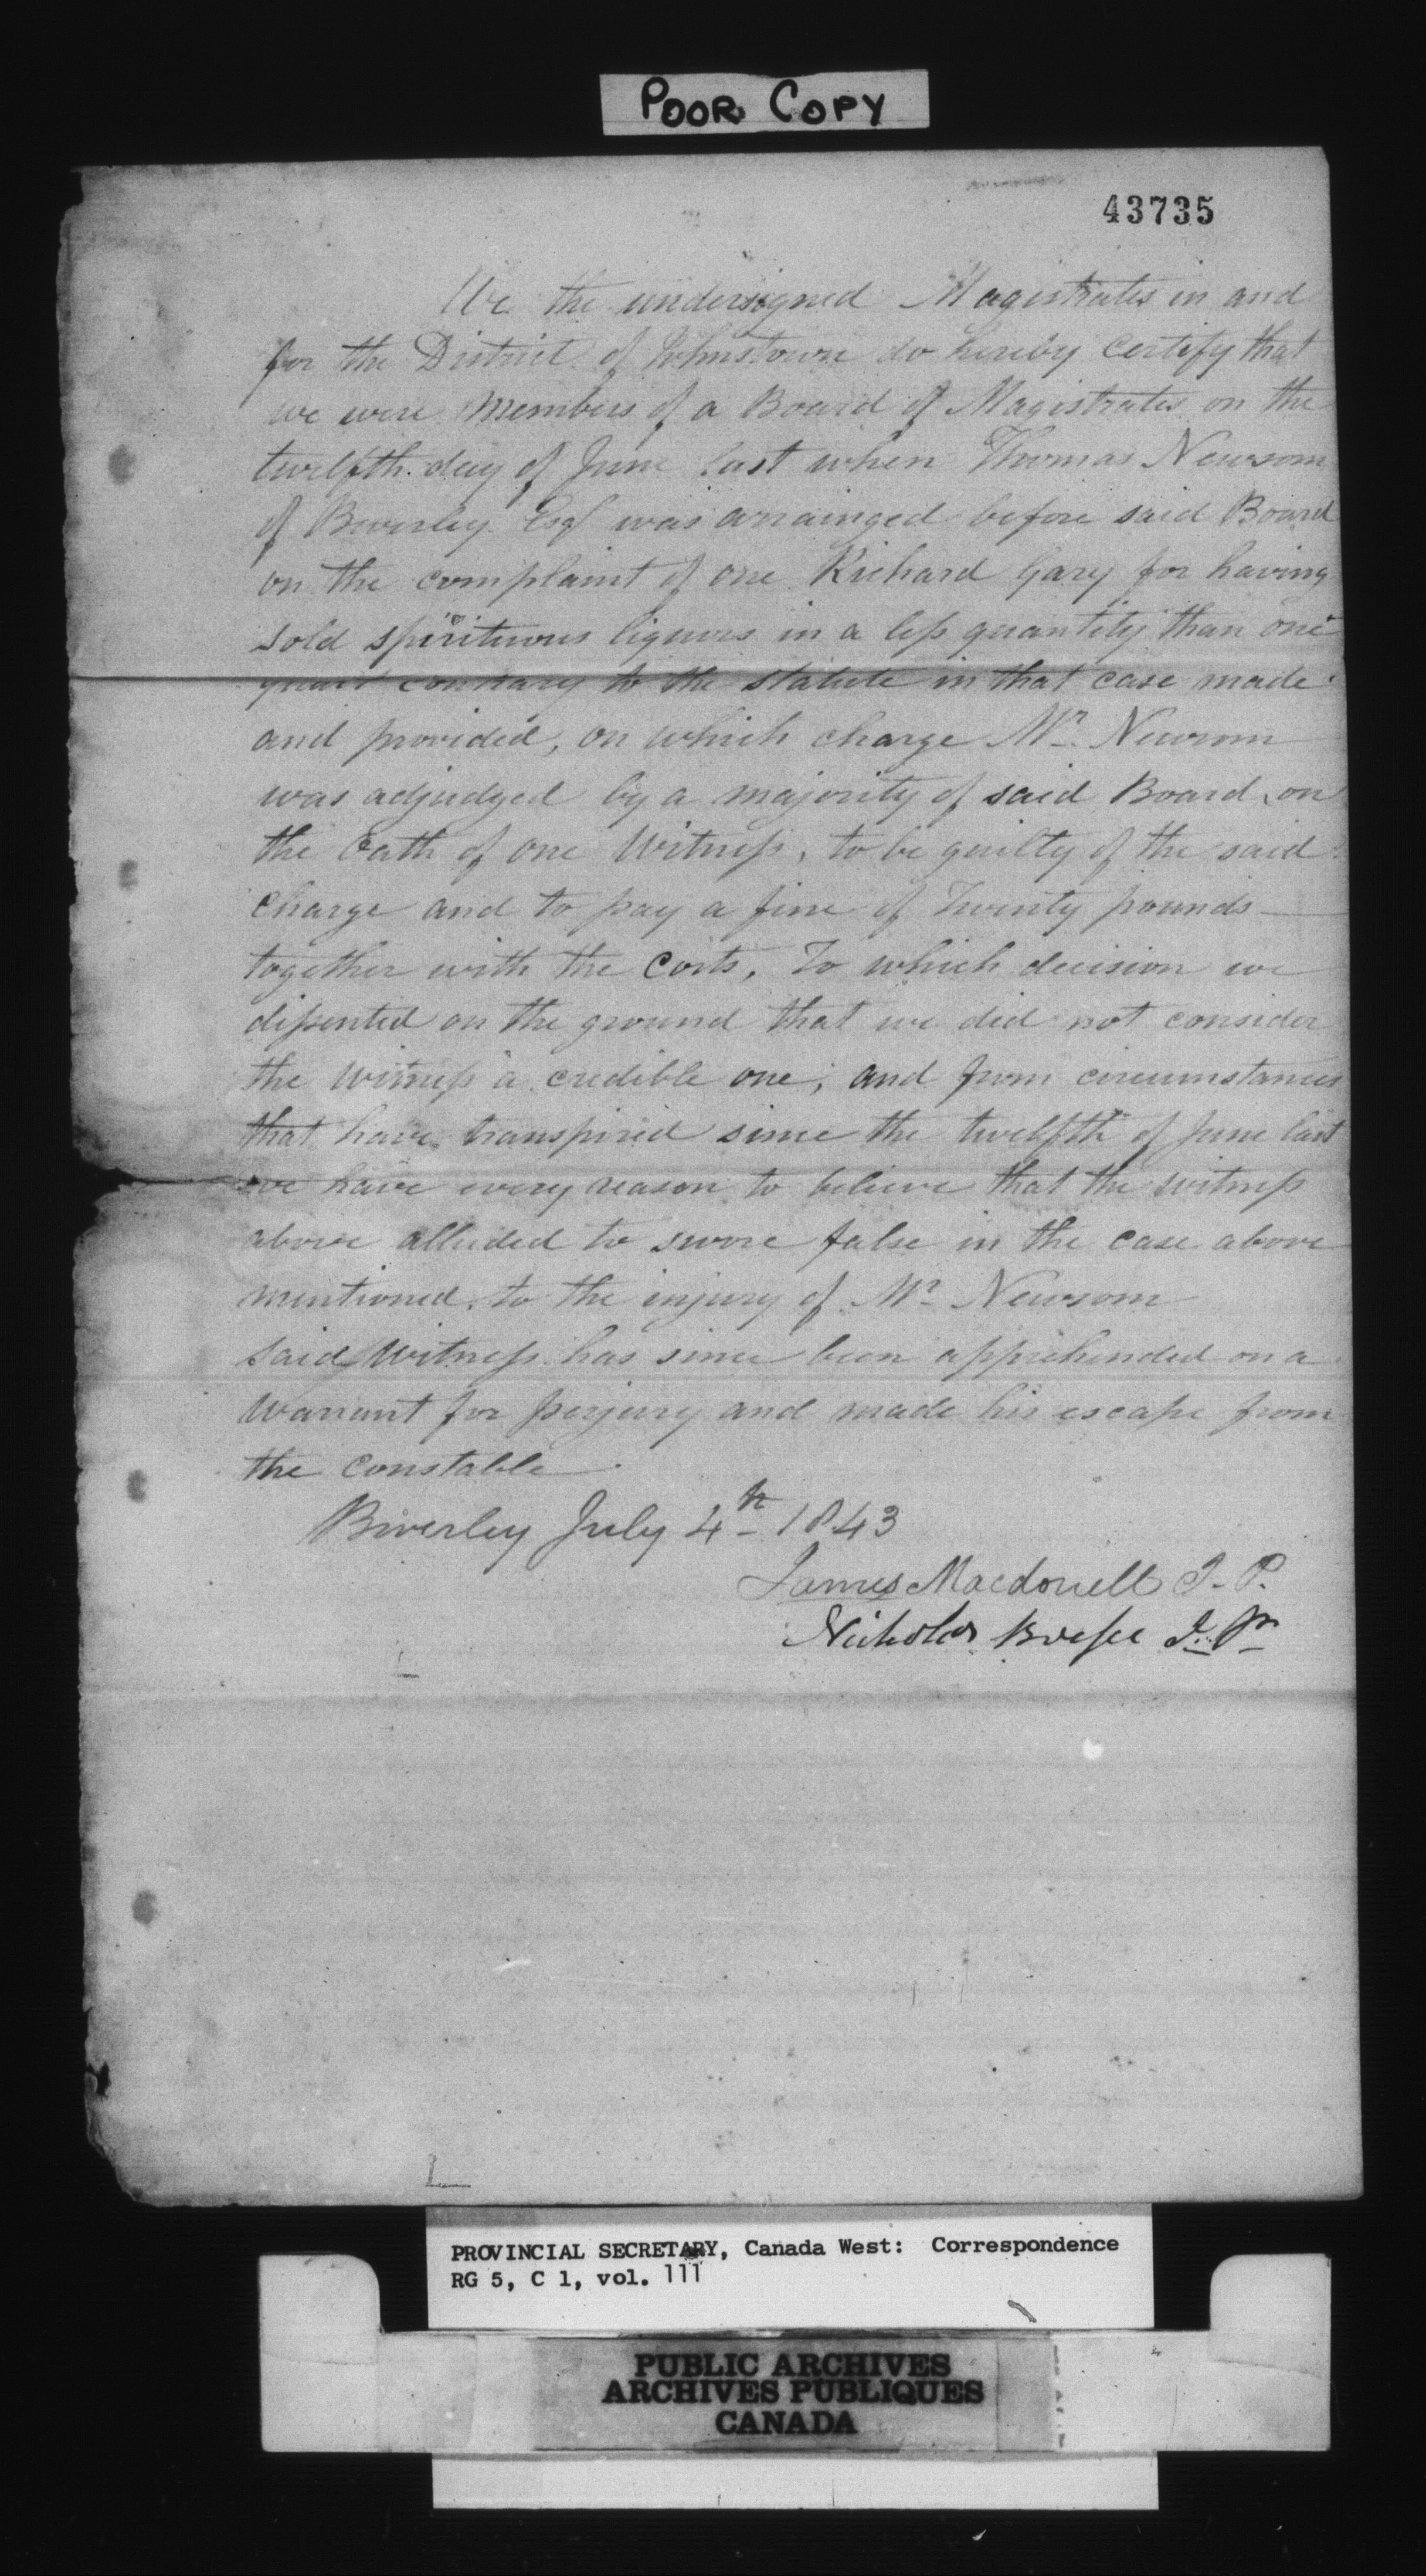 POOR COPY
43735
We the undersigned Magistrates in and
for the District of Johnstown do hereby certify that
we were members of a Board of Magistrates on the
twelfth day of June last when Thomas Newsom
of Beverley Esqr was arrainged before said Board
on the complaint of one Richard Gary for having
sold spirituous liquors in a less quantity than one
quart contrary to the statute in that case made
and provided, on which charge Mr. Newsom
was adjudged by a majority of said Board, on
the Oath of one Witness, to be guilty of the said
charge and to pay a fine of Twenty pounds
together with the Costs, To which decision we
dissented on the ground that we did not consider
the Witness a credible one; and from circumstances
that have transpired since the twelfth of June last
we have every reason to believe that the witness
above alluded to swore false in the case above
mentioned, to the injury of Mr. Newsom
said Witness has since been apprehended on a
Warrant for perjury and made his escape from
the Constable
Beverley July 4th 1843
James Macdonell J. P.
Nicholas J. P.
PROVINCIAL SECRETARY, Canada West: Correspondence
RG 5, C 1, vol. 111
PUBLIC ARCHIVES
ARCHIVES PUBLIQUES
CANADA